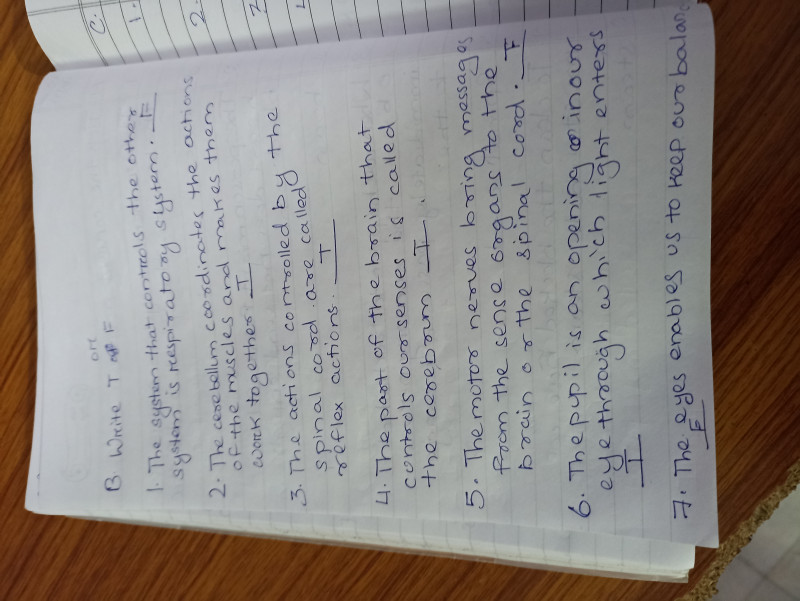 B Write T or F
1. The system that controls the other
system is respiratory system. F
2. The cerebellum coordinates the actions
of the muscles and makes them
work together. T
3. The actions controlled by the
spinal cord are called
reflex actions. T
4. The part of the brain that
controls our senses is called
the cerebrum T.
5. The motor nerves bring messages
from the sense organs to the
brain or the spinal cord. F
6. The pupil is an opening in our
eye through which light enters
T
7. The eyes enables us to keep our balanc
F
C.
1.
2.